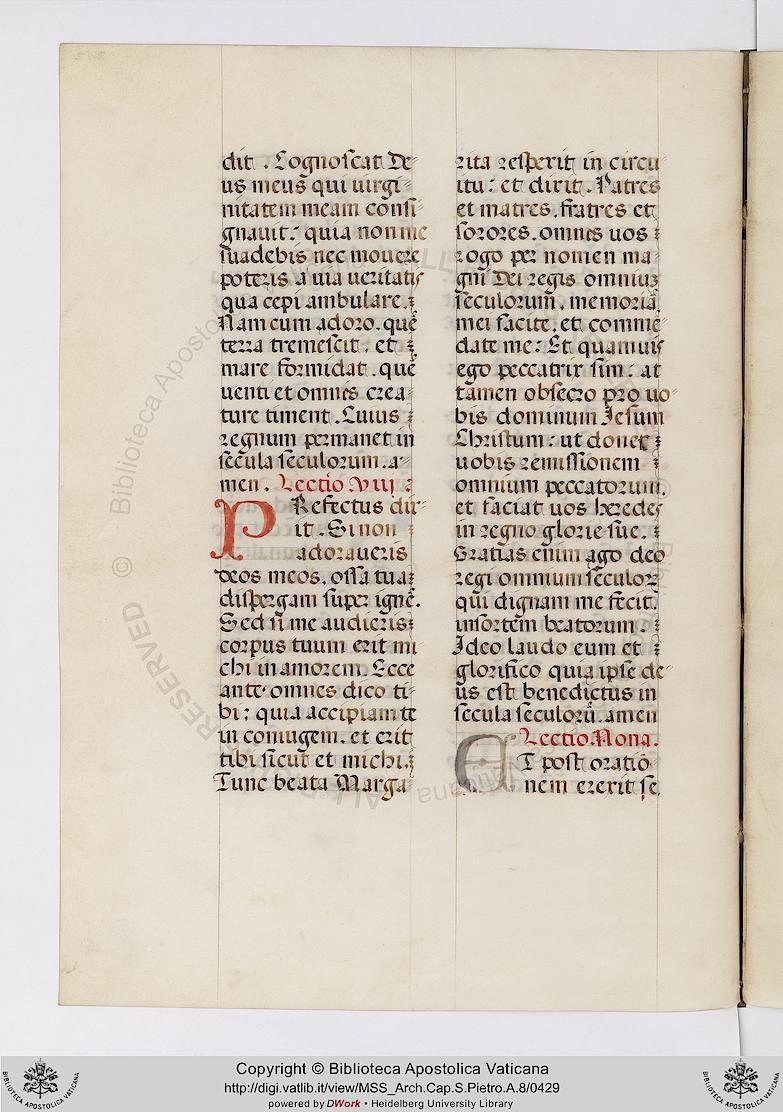 dit. Cognoscat De-
us meus qui uirgi-
nitatem meam consi-
gnauit: quia non me
suadebis nec mouere
poteris a uia ueritatis
qua cepi ambulare.
Nam cum adoro. quē
terra tremescit. et
mare formidat. quē
uenti et omnes crea-
ture timent. Cuius
regnum permanet in
secula seculorum. a-
men. Lectio Viij
PRefectus dix-
it. Si non
adoraueris
deos meos, ossa tua
dispergam super ignē.
Sed si me audieris
corpus tuum erit mi
chi in amorem. Ecce
ante omnes dico ti-
bi: quia accipiam te
in coniugem. et erit
tibi sicut et michi.
Tunc beata Marga
rita respexit in circu
itu: et dixit. Patres
et matres. fratres et
sorores. omnes uos
rogo per nomen ma-
gni Dei regis omniuʒ
seculorum. memoriā
mei facite. et commē
date me: Et quamuis
ego peccatrix sim: at
tamen obsecro pro uo-
bis dominum Iesum
Christum: ut donet
uobis remissionem
omnium peccatorum.
et faciat uos heredes
in regno glorie sue.
Gratias enim ago deo
regi omnium seculoꝝ
qui dignam me fecit.
in sortem beatorum.
Ideo laudo eum et
glorifico quia ipse de-
us est benedictus in
secula seculorū. amen
Lectio Nona.
ET post oratio-
nem erexit se.
© Biblioteca Apostolica Vaticana
ALL RIGHTS RESERVED
Copyright © Biblioteca Apostolica Vaticana
http://digi.vatlib.it/view/MSS_Arch.Cap.S.Pietro.A.8/0429
powered by DWork • Heidelberg University Library
BIBLIOTECA APOSTOLICA VATICANA
BIBLIOTECA APOSTOLICA VATICANA